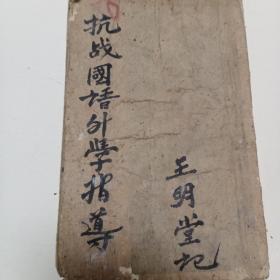 抗战國语外學指導
王明堂记